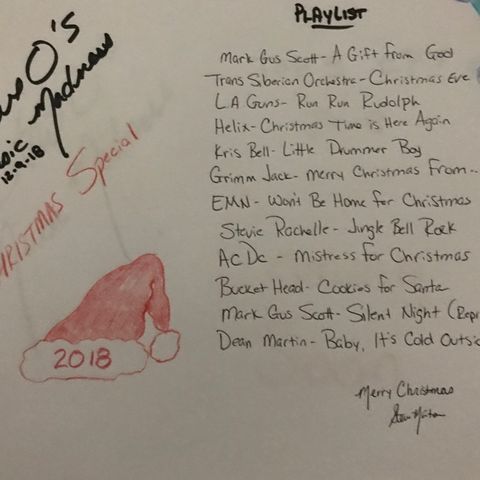 O's
Madness
12.9.18
Christmas Special
2018
PLAYLIST
Mark Gus Scott - A Gift from God
Trans Siberian Orchestra - Christmas Eve
L.A Guns - Run Run Rudolph
Helix - Christmas Time is Here Again
Kris Bell - Little Drummer Boy
Grimm Jack - Merry Christmas From..
EMN - Won't Be Home for Christmas
Stevie Rachelle - Jingle Bell Rock
AC DC - Mistress for Christmas
Bucket Head - Cookies for Santa
Mark Gus Scott - Silent Night (Repr
Dean Martin - Baby, It's Cold Outsid
Merry Christmas